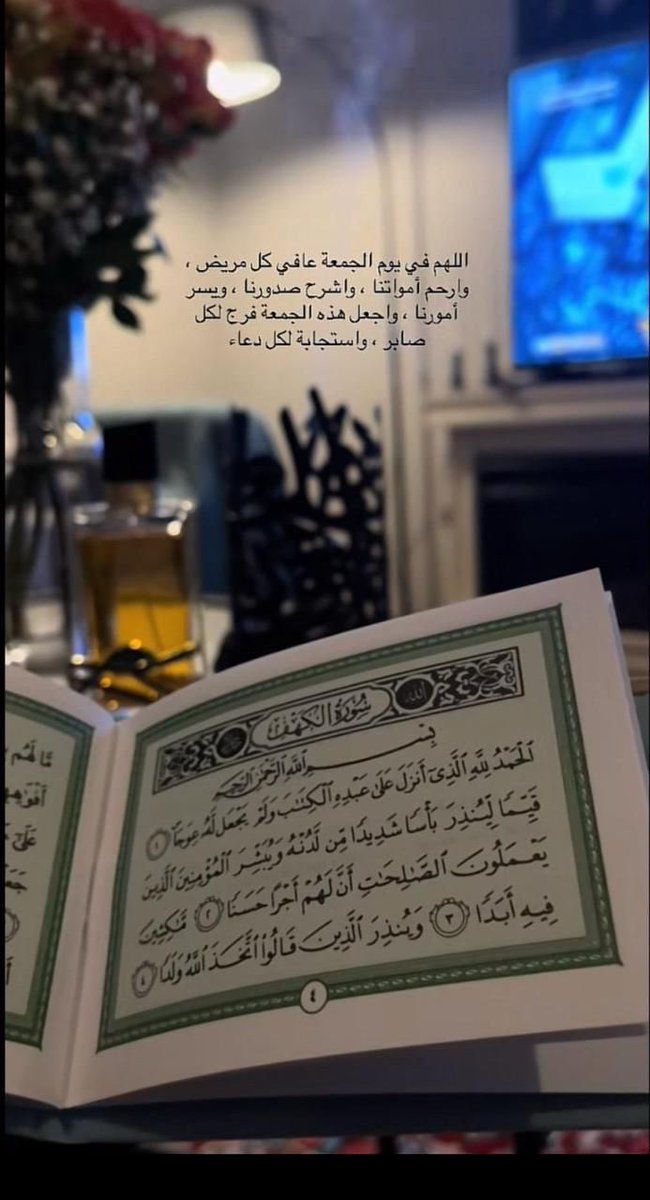 اللهم في يوم الجمعة عافي كل مريض ،
وارحم أمواتنا ، واشرح صدورنا ، ويسر
أمورنا ، واجعل هذه الجمعة فرج لكل
صابر ، واستجابة لكل دعاء
سُورَةُ الكَهْفِ
بِسْمِ ٱللَّهِ ٱلرَّحْمَٰنِ ٱلرَّحِيمِ
ٱلْحَمْدُ لِلَّهِ ٱلَّذِىٓ أَنزَلَ عَلَىٰ عَبْدِهِ ٱلْكِتَٰبَ وَلَمْ يَجْعَل لَّهُۥ عِوَجَا ۜ ١
قَيِّمًا لِّيُنذِرَ بَأْسًا شَدِيدًا مِّن لَّدُنْهُ وَيُبَشِّرَ ٱلْمُؤْمِنِينَ ٱلَّذِينَ
يَعْمَلُونَ ٱلصَّٰلِحَٰتِ أَنَّ لَهُمْ أَجْرًا حَسَنًا ٢ مَّٰكِثِينَ
فِيهِ أَبَدًا ٣ وَيُنذِرَ ٱلَّذِينَ قَالُوا۟ ٱتَّخَذَ ٱللَّهُ وَلَدًا ٤
٤
مَّا لَهُم
عَلَىٰٓ